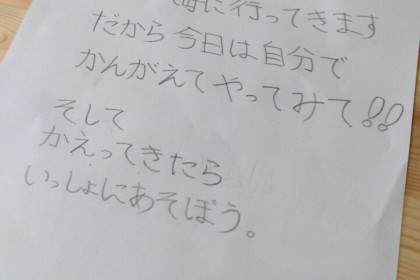 に行ってきます
だから今日は自分で
かんがえてやってみて!!
そして
かえってきたら
いっしょにあそぼう。